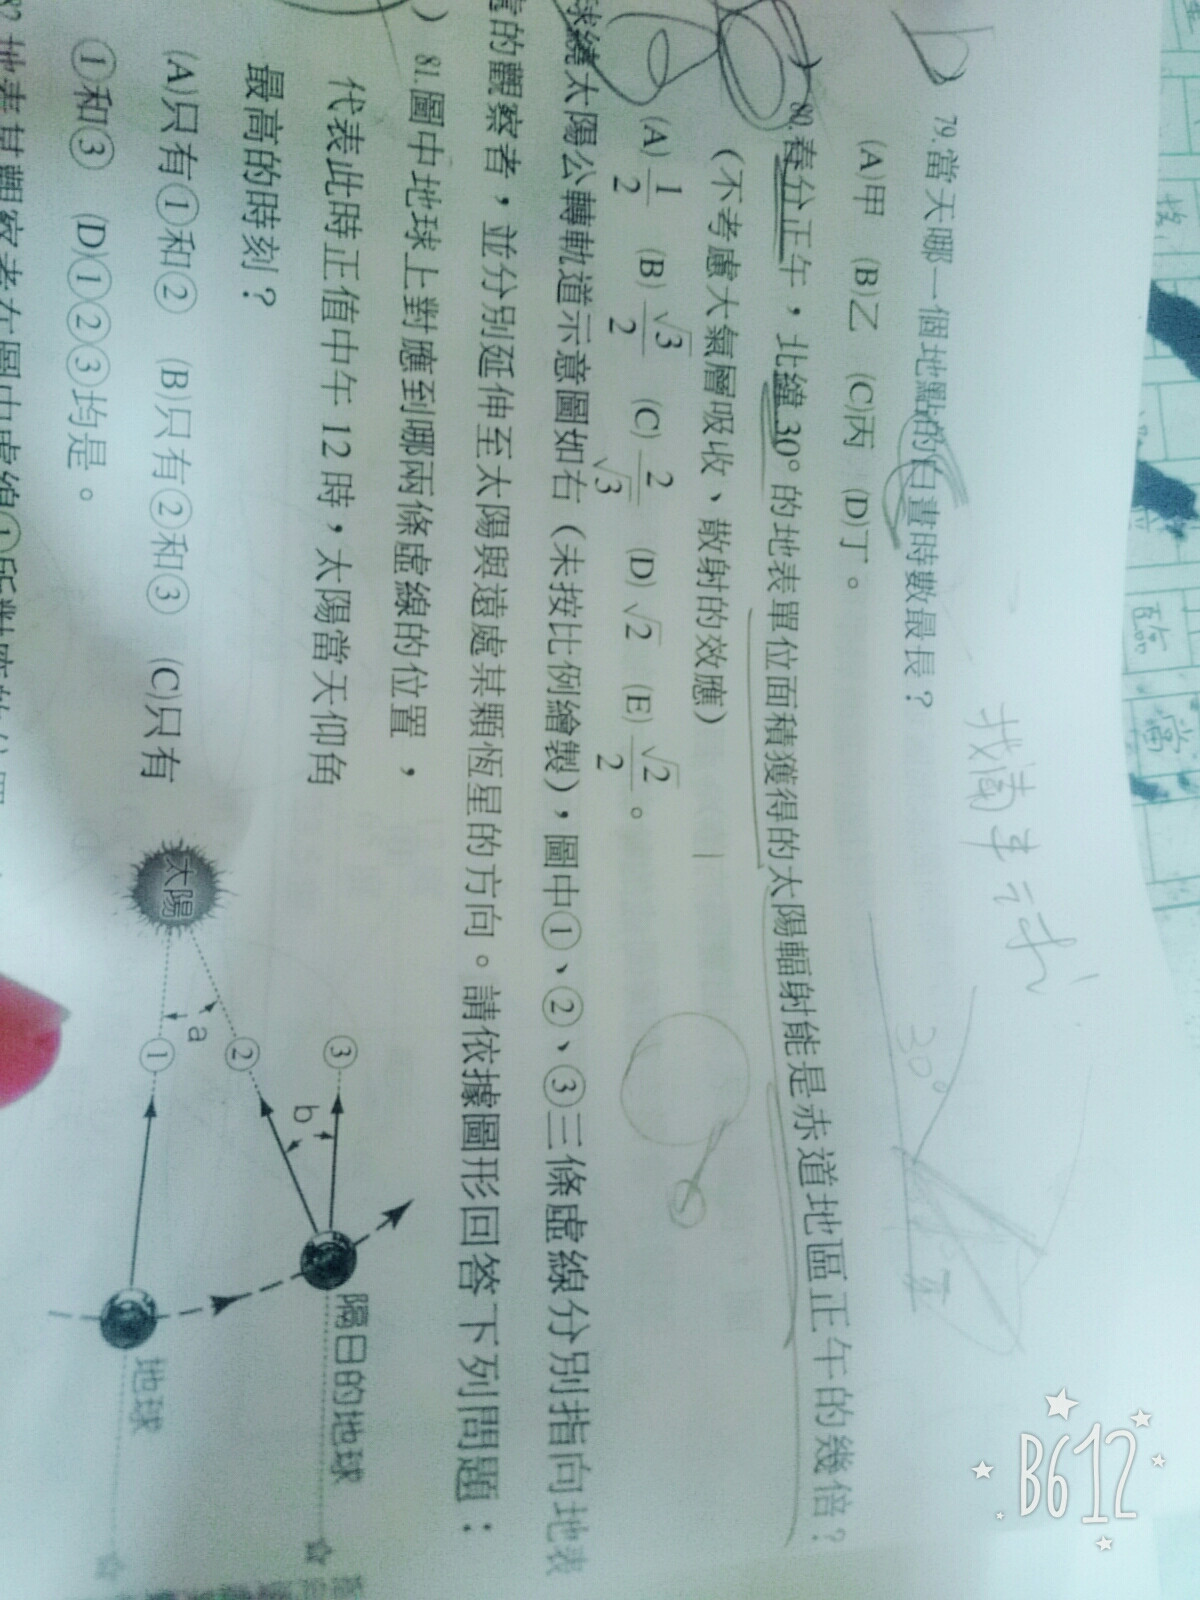 79.當天哪一個地點的白晝時數最長？
(A)甲 (B)乙 (C)丙 (D)丁。
80.春分正午，北緯30°的地表單位面積獲得的太陽輻射能是赤道地區正午的幾倍？
(不考慮大氣層吸收、散射的效應)
(A)1/2 (B)√3/2 (C)2/√3 (D)√2 (E)√2/2。
球繞太陽公轉軌道示意圖如右(未按比例繪製)，圖中①、②、③三條虛線分別指向地表
的觀察者，並分別延伸至太陽與遠處某顆恆星的方向。請依據圖形回答下列問題：
) 81.圖中地球上對應到哪兩條虛線的位置，
代表此時正值中午12時，太陽當天仰角
最高的時刻？
(A)只有①和② (B)只有②和③ (C)只有
①和③ (D)①②③均是。
太陽
a
①
②
③
b
隔日的地球
地球
30°
臨
當
B612